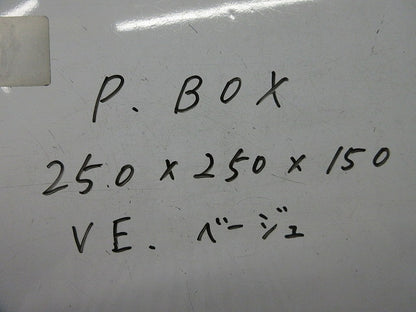 P. BOX
250 × 250 × 150
VE. ベージュ